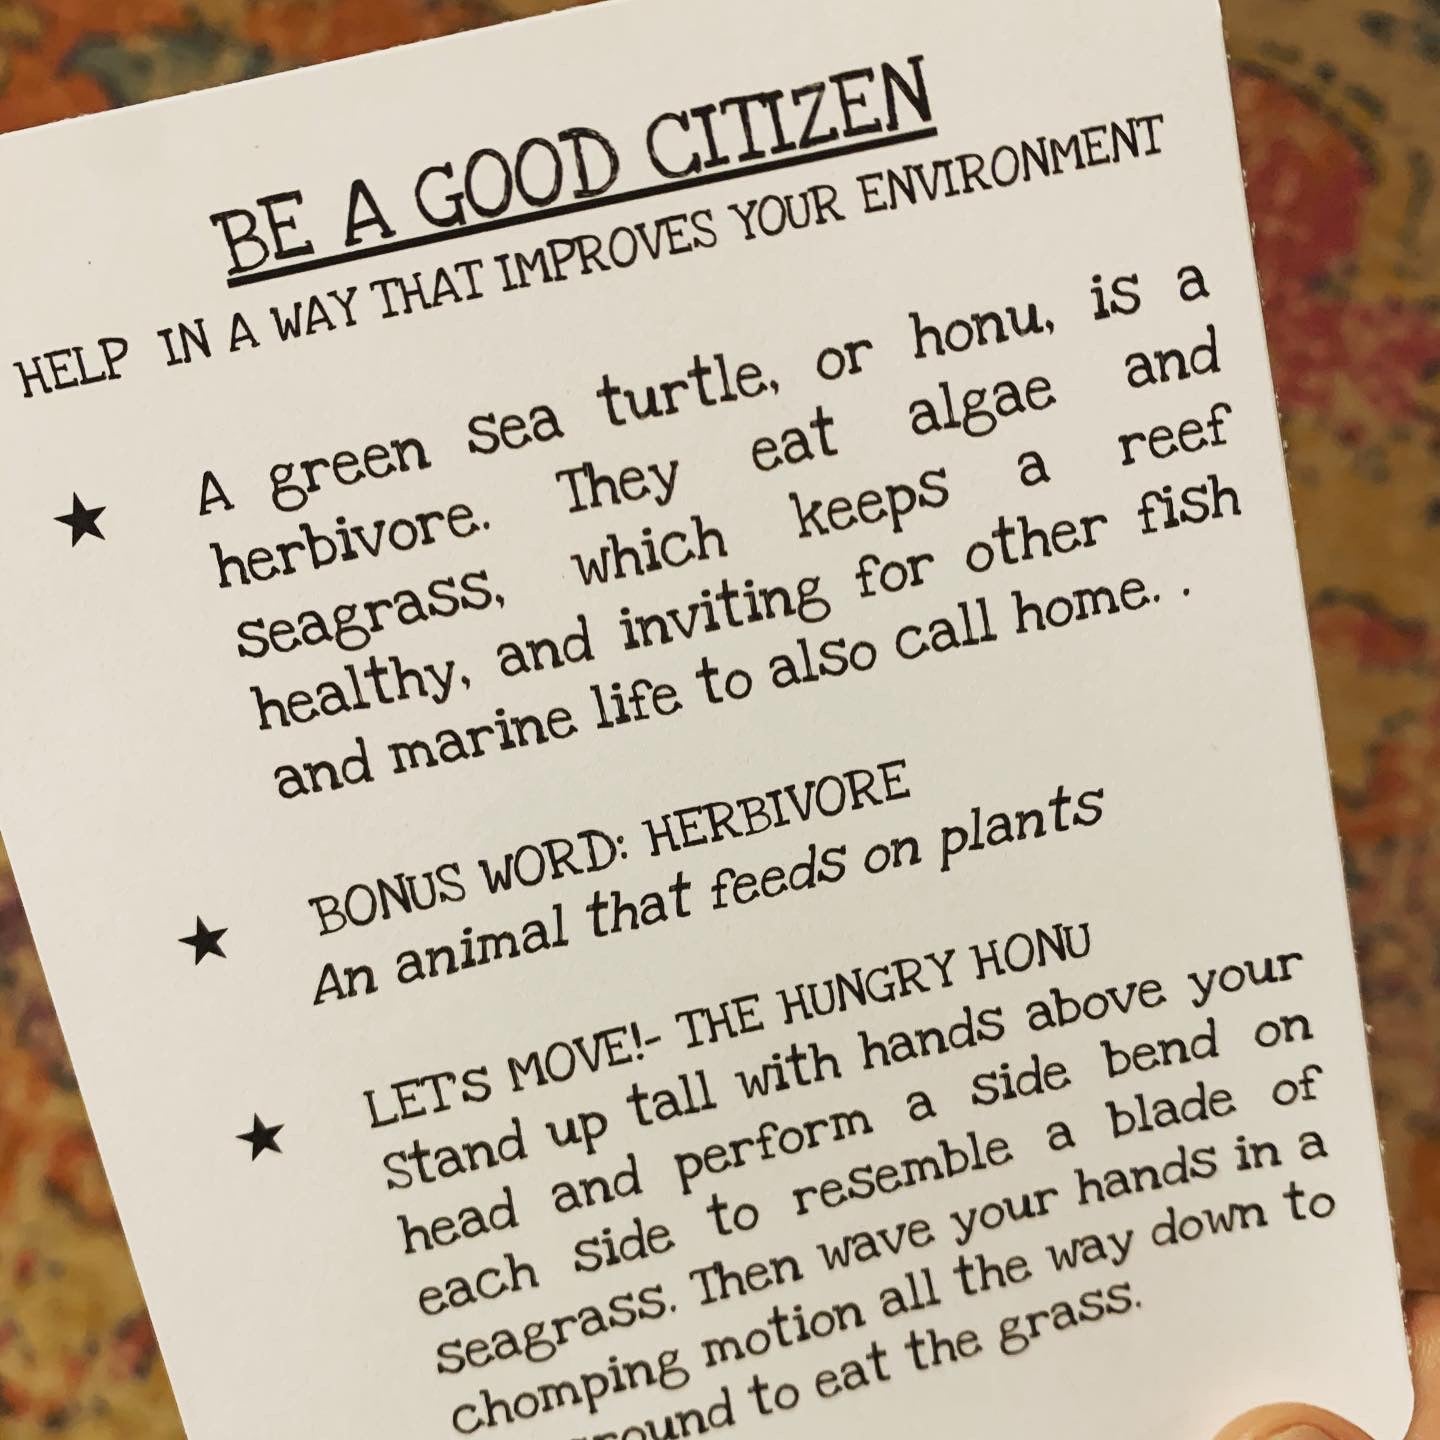 BE A GOOD CITIZEN
HELP IN A WAY THAT IMPROVES YOUR ENVIRONMENT
A green sea turtle, or honu, is a
herbivore. They eat algae and
seagrass, which keeps a reef
healthy, and inviting for other fish
and marine life to also call home. .
BONUS WORD: HERBIVORE
An animal that feeds on plants
LET'S MOVE!- THE HUNGRY HONU
Stand up tall with hands above your
head and perform a side bend on
each side to resemble a blade of
seagrass. Then wave your hands in a
chomping motion all the way down to
to eat the grass.